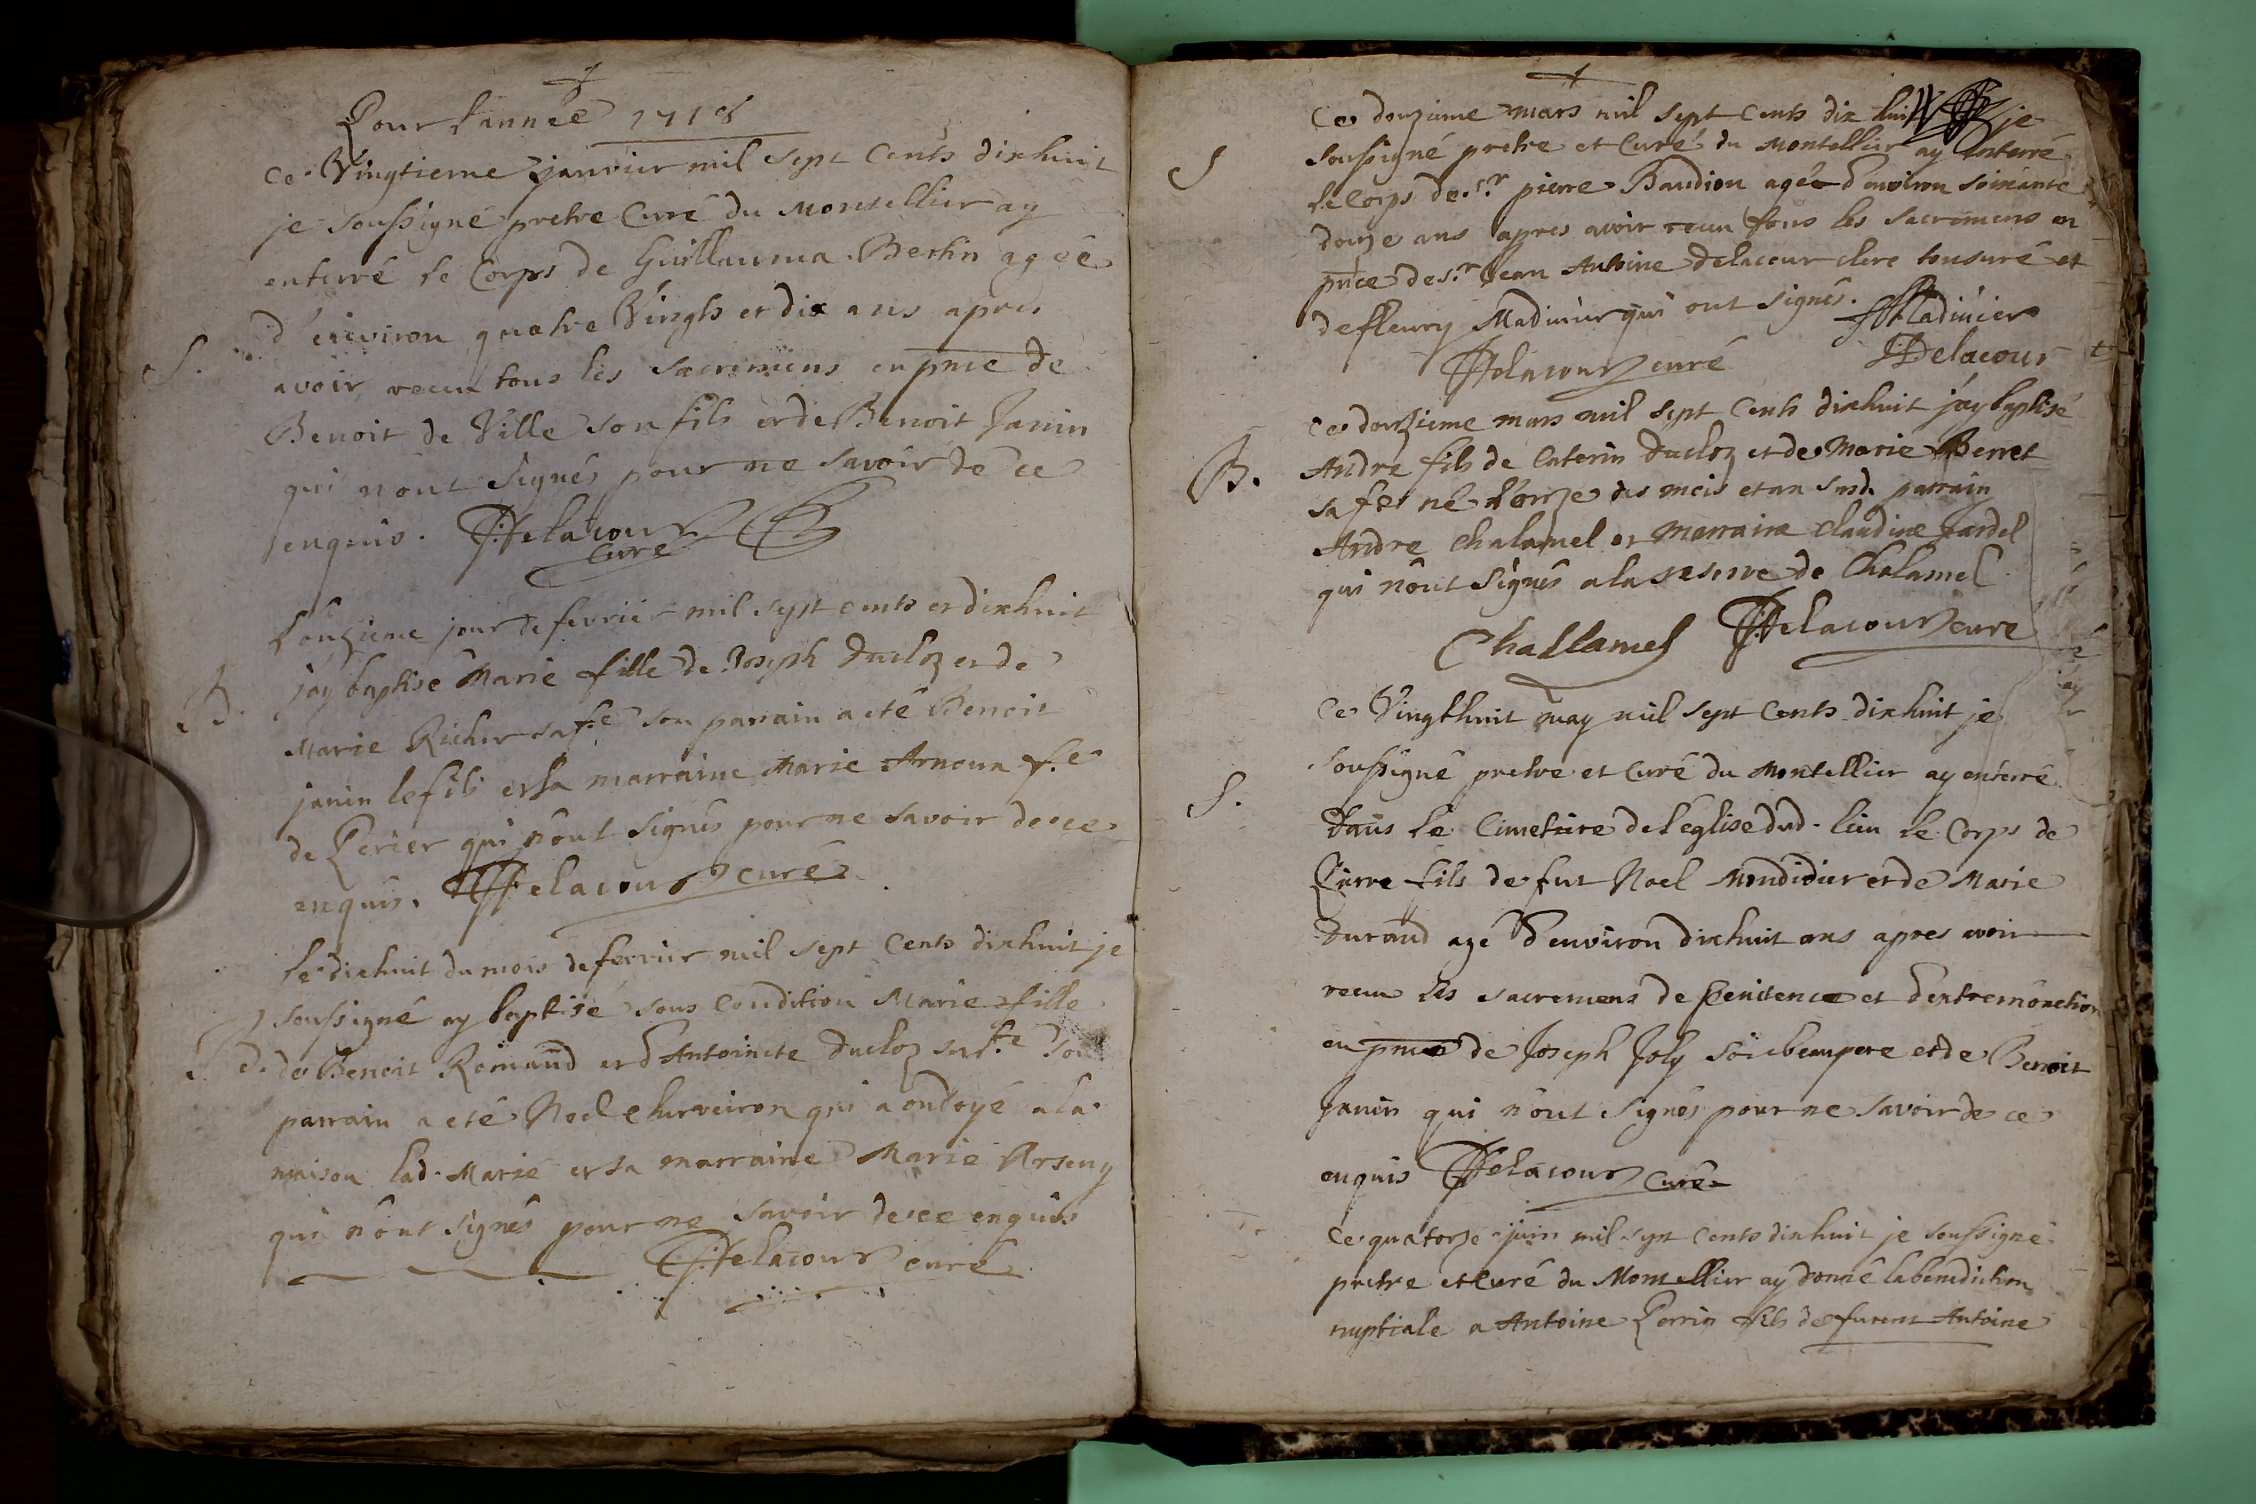 Pour l'année 1718
Ce Vingtieme janvier mil sept Cents dixhuit
je soussigné pretre Curé du Montellier ay
enterré le Corps de Guillauma Berlin agée
S.
d'environ quatre Vingts et dix ans apres
avoir receu tous les sacremens en pnce de
Benoit de Ville son fils et de Benoit Janin
qui n'ont signés pour ne savoir de ce
enquis. Delacour
Curé
L'onzieme jour de fevrier mil sept cents et dixhuit
B.
j'ay baptisé Marie fille de Joseph Ducloz et de
Marie Richer sa fe son parrain a eté Benoit
janin le fils et sa marraine Marie Arnoux f.e
de Perier qui n'ont signés pour ne savoir de ce
enquis. Delacour curé
le dixhuit du mois de fevrier mil sept Cents dixhuit je
soussigné ay baptisé sous condition Marie fille
de Benoit Romand et d'Antoinete Ducloz sa fe son
parrain a eté Noel qui a ondoyé a la
maison lad. Marie et sa marraine Marie Arseny
qui n'ont signés pour ne savoir de ce enquis
Delacour curé
Ce douzieme mars mil sept Cents dix huit je
S
soussigné pretre et Curé du Montellier ay enterré
le Corps de s.r pierre Baudion agée d'environ soixante
douze ans apres avoir receu tous les sacremens en
pnce de s.r Jean Antoine Delacour clerc tonsuré et
de fleury Madinier qui ont signés. Madinier
Delacour curé Delacour
Ce douzieme mars mil sept Cents dixhuit j'ay baptisé
B.
Andre fils de Caterin Ducloz et de Marie Berret
sa fe né l'onze des mois et an susd. parrain
Andre Chalamel et marraine Claudine Jardel
qui n'ont signés a la reserve de Chalamel
Challamel Delacour curé
Ce Vingthuit may mil sept Cents dixhuit je
soussigné pretre et Curé du Montellier ay enterré
S.
dans le Cimetiere de l'eglise dud. lieu le Corps de
Pierre fils de fut Noel Mondidier et de Marie
Durand agé d'environ dixhuit ans apres avoir
receu les sacremens de penitence et d'extremonction
en pnce de Joseph Joly son beaupere et de Benoit
Janin qui n'ont signés pour ne savoir de ce
enquis Delacour curé
Ce quatorze juin mil sept Cents dixhuit je soussigné
pretre et curé du Montellier ay donné la benediction
nuptiale a Antoine Perrin fils de furent Antoine